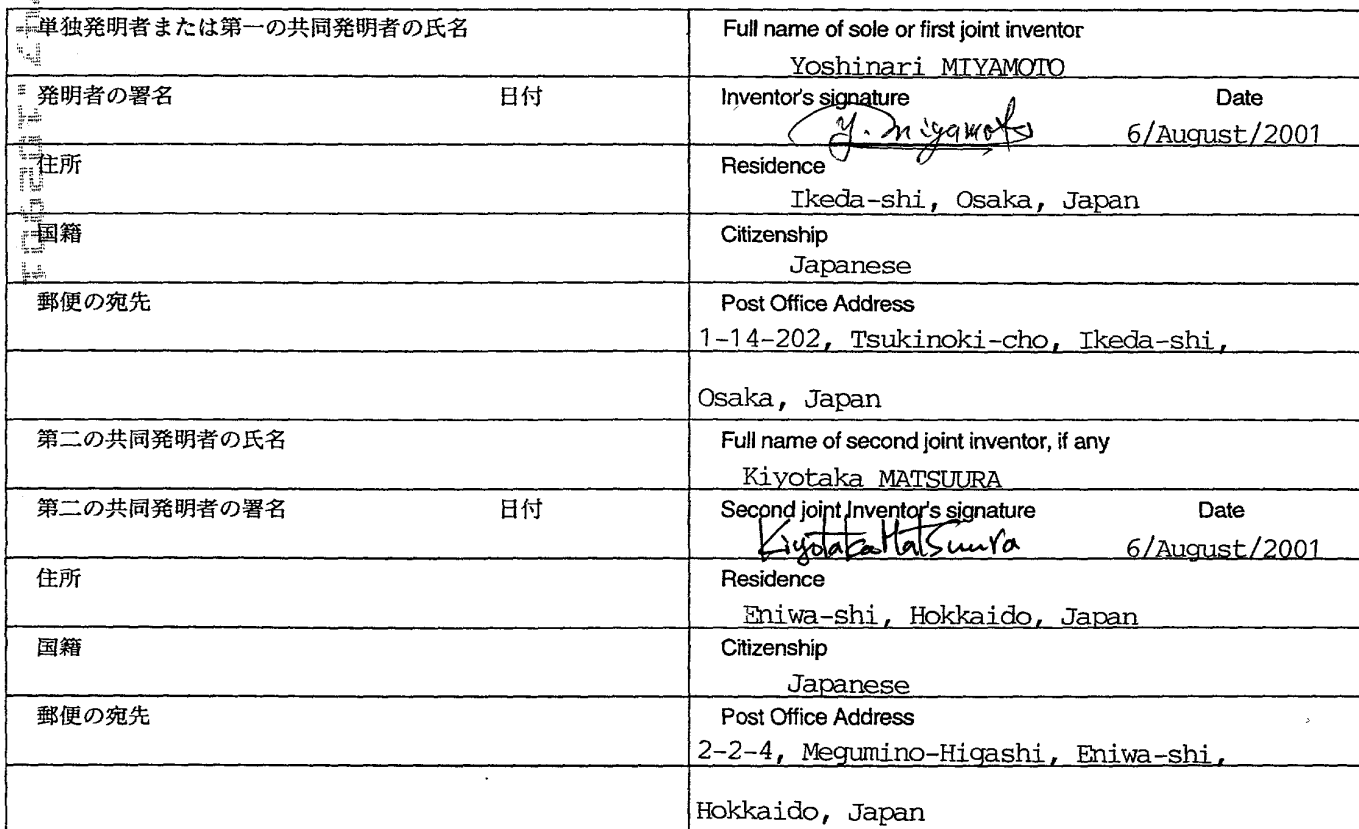 単独発明者または第一の共同発明者の氏名
Full name of sole or first joint inventor
Yoshinari MIYAMOTO
発明者の署名 日付
Inventor's signature Date
y. miyamoto 6/August/2001
住所
Residence
Ikeda-shi, Osaka, Japan
国籍
Citizenship
Japanese
郵便の宛先
Post Office Address
1-14-202, Tsukinoki-cho, Ikeda-shi,
Osaka, Japan
第二の共同発明者の氏名
Full name of second joint inventor, if any
Kiyotaka MATSUURA
第二の共同発明者の署名 日付
Second joint Inventor's signature Date
Kiyotaka Matsuura 6/August/2001
住所
Residence
Eniwa-shi, Hokkaido, Japan
国籍
Citizenship
Japanese
郵便の宛先
Post Office Address
2-2-4, Megumino-Higashi, Eniwa-shi,
Hokkaido, Japan